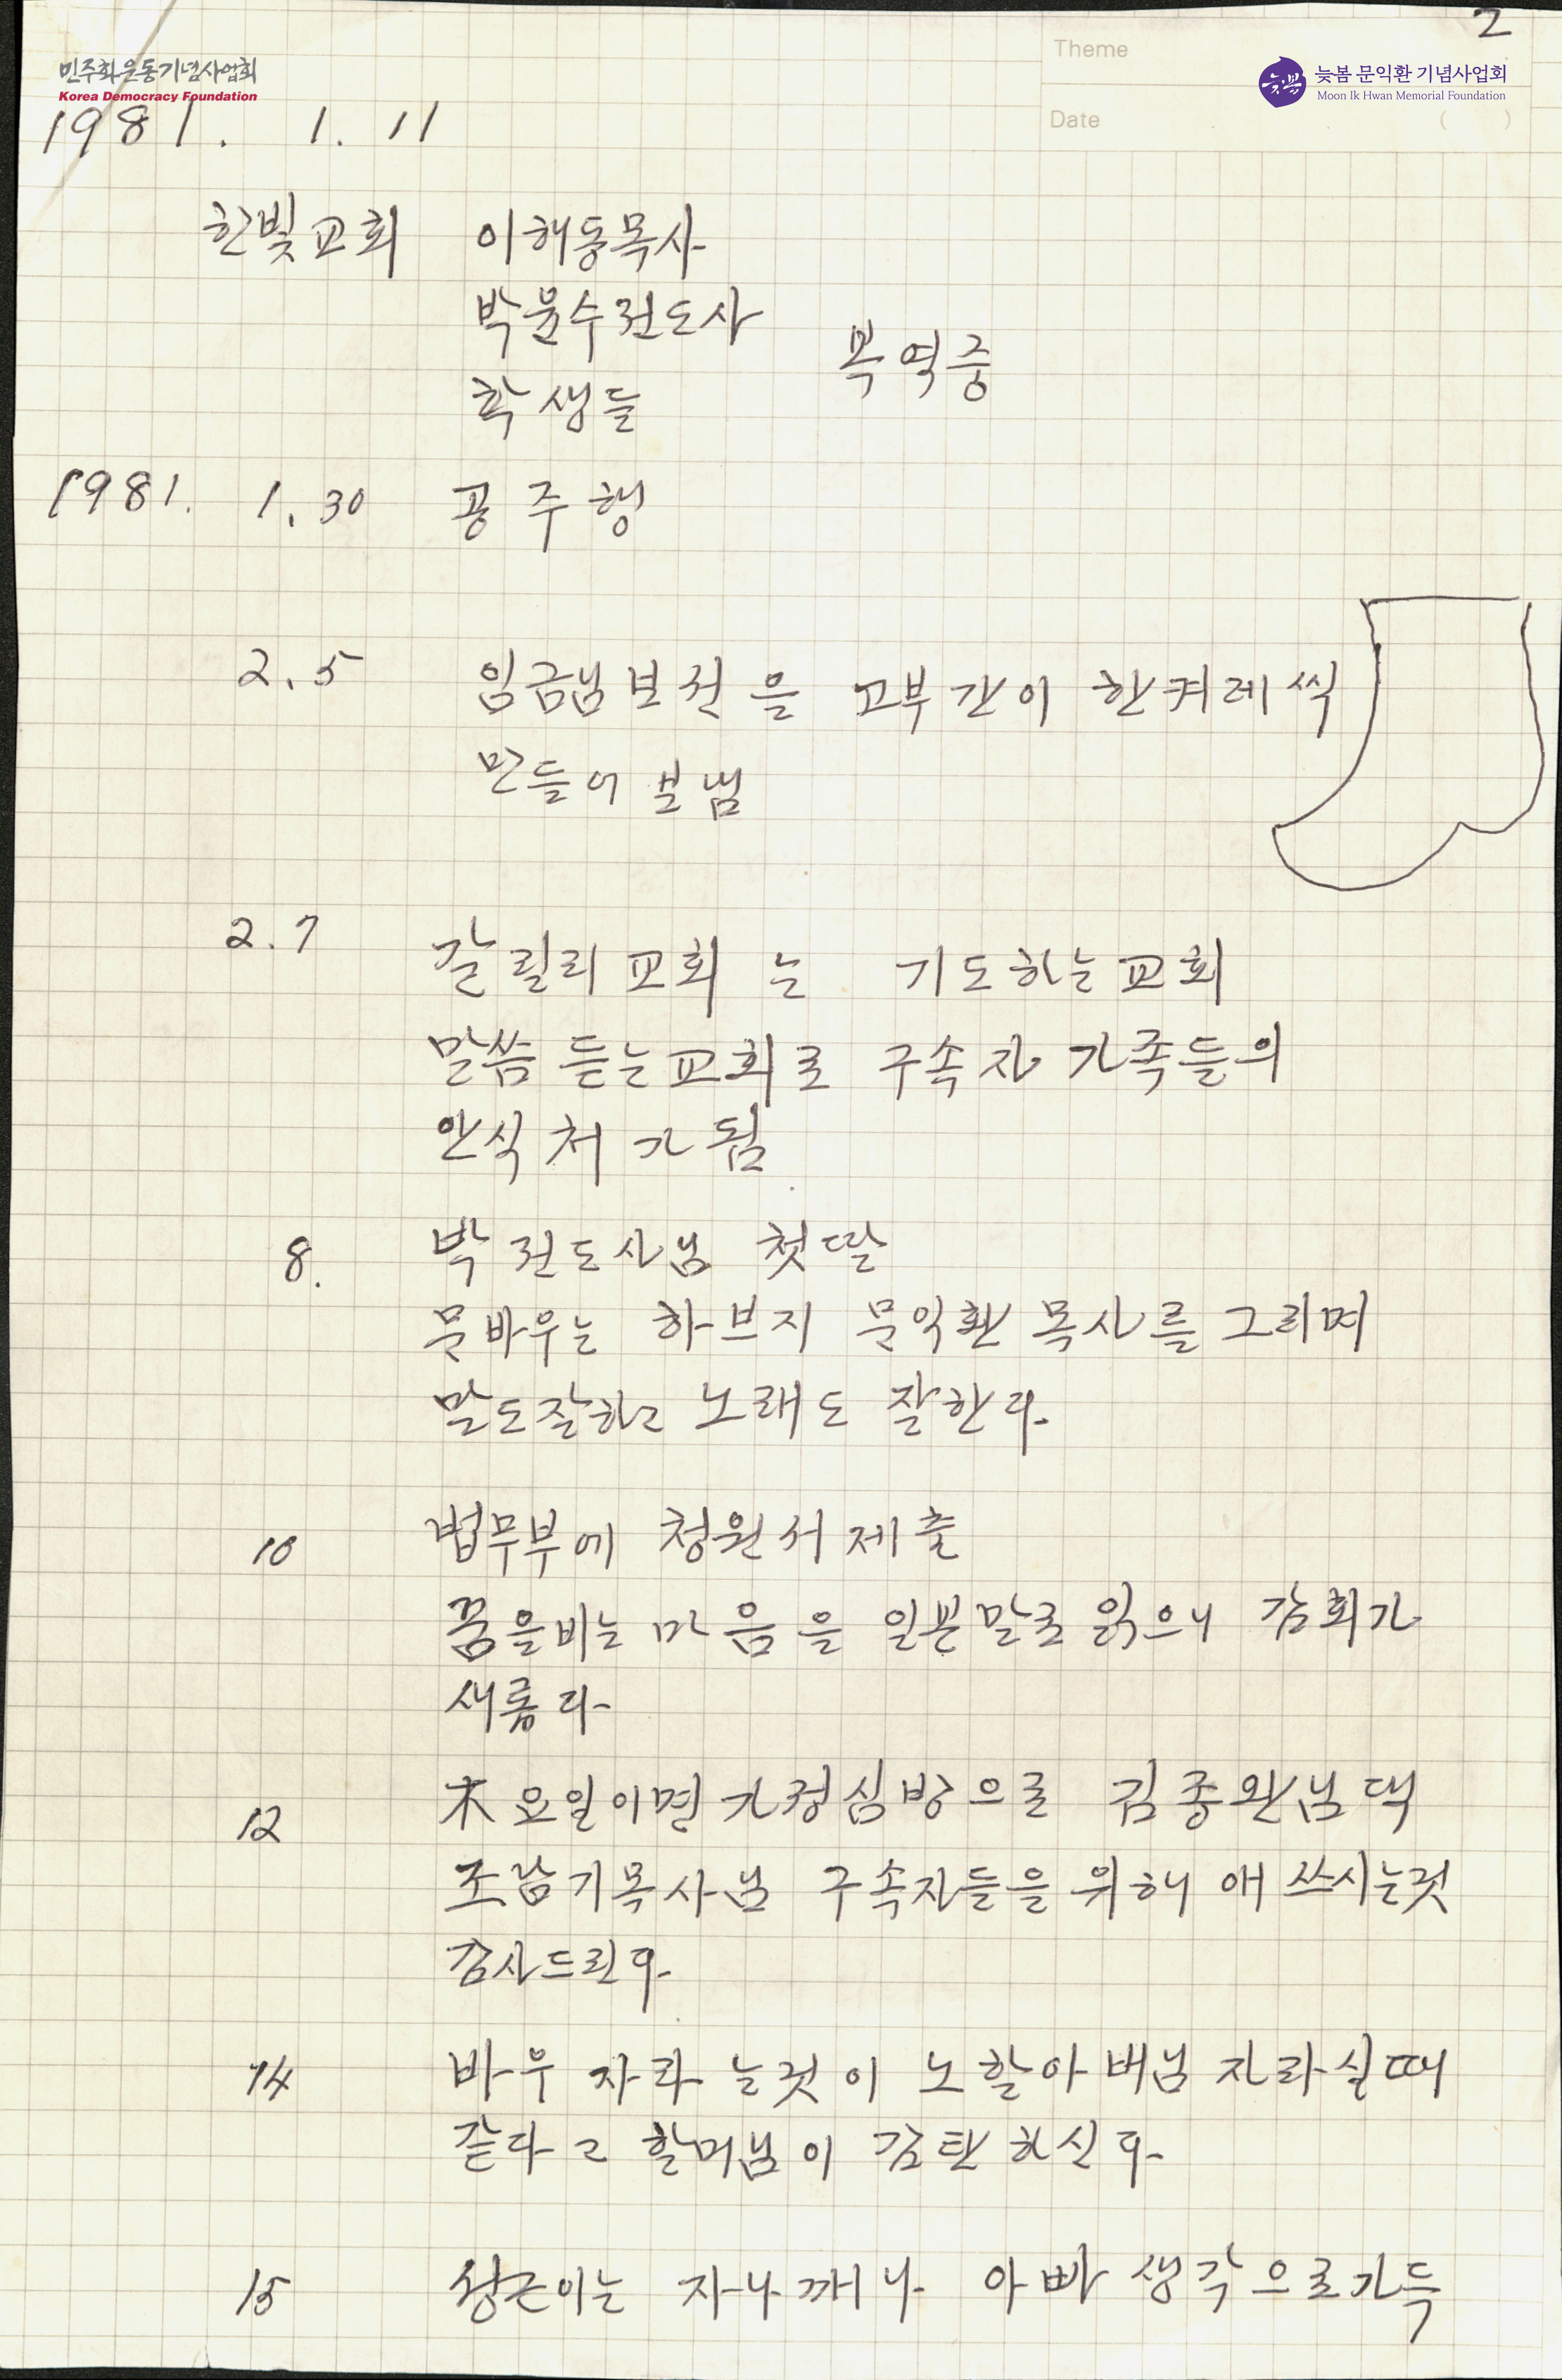 2
Theme
민주화운동기념사업회
Korea Democracy Foundation
늦봄
늦봄 문익환 기념사업회
Moon Ik Hwan Memorial Foundation
Date ( )
1981. 1. 11
한빛교회 이해동목사
박윤수전도사
복역중
학생들
1981. 1. 30 공주행
2. 5 임금님보선을 고부간이 한켜레씩
만들어 보냄
2. 7 갈릴리교회는 기도하는교회
말씀 듣는교회로 구속자 가족들의
안식처가됨
8. 박전도사님 첫딸
문바우는 하브지 문익환 목사를 그리며
말도잘하고 노래도 잘한다.
10 법무부에 청원서제출
꿈을비는 마음을 일본말로 읽으니 감회가
새롭다
12 木요일이면 가정심방으로 김종완님댁
조남기목사님 구속자들을 위해 애쓰시는것
감사드린다.
14 바우 자라는것이 노할아버님 자라실때
같다고 할머님이 감탄하신다.
15 성근이는 자나깨나 아빠 생각으로가득